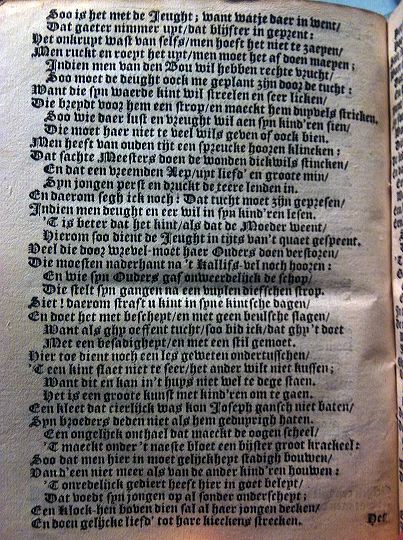 Soo is het met de Jeught; want watje daer in went/
Dat gaeter nimmer upt/dat blijfter in geprent:
Het onkrupt wast van selfs/men hoeft het niet te zaepen/
Men ruckt en roept het upt/men moet het af doen maepen;
Indien men van den Bou wil hebben rechte vrucht/
Soo moet de deught oock me geplant zijn door de tucht:
Want die syn waerde kint wil streelen en seer licken/
Die brepdt voor hem een strop/en maeckt hem dupvels stricken.
Soo wie daer lust en vreught wil aen syn kind'ren sien/
Die moet haer niet te veel wils geven of oock bien.
Men heeft van ouden tijt een spreucke hooren klincken:
Dat sachte Meesters doen de wonden dickwils stincken/
En dat een vreemden Aep/upt liefd' en groote min/
Syn jongen perst en druckt de teere lenden in.
En daerom segh ick noch: Dat tucht moet zijn gepresen/
Indien men deught en eer wil in syn kind'ren lesen.
'T is beter dat het kint/als dat de Moeder weent/
Hierom soo dient de Jeught in tijts van't quaet gespeent.
Veel die door wrevel-moet haer Ouders doen verstoren/
Die moesten naderhant na 't Kallifs-vel noch hooren:
En wie syn Ouders gaf onweerdelijck de schop/
Die stelt syn gangen na een vuplen dieffschen strop.
Siet! daerom straft u kint in syne kintsche dagen/
En doet het met beschept/en met geen beulsche slagen/
Want als ghy oeffent tucht/soo bid ick/dat ghy't doet
Met een besadigheyt/en met een stil gemoet.
Hier toe dient noch een les geweten ondertusschen/
'T een kint slaet niet te seer/het ander wilt niet kussen;
Want dit en kan in't huys niet wel te dege staen.
Het is een groote kunst met kind'ren om te gaen.
Een kleet dat cierlijck was kon Joseph gansch niet baten/
Syn broeders deden niet als hem geduprigh haten.
Een ongelijck onthael dat maeckt de oogen scheel/
'T maeckt onder 't naeste bloet een bijster groot krackeel:
Soo dat men hier in moet gelijckhept stadigh bouwen/
Van d'een niet meer als van de ander kind'ren houwen:
'T onredelijck gediert heeft hier in goet belept/
Dat voedt syn jongen op al sonder onderschept;
Een Klock-hen boven dien sal al haer jongen decken/
En doen gelijcke liefd' tot hare kieckens strecken.